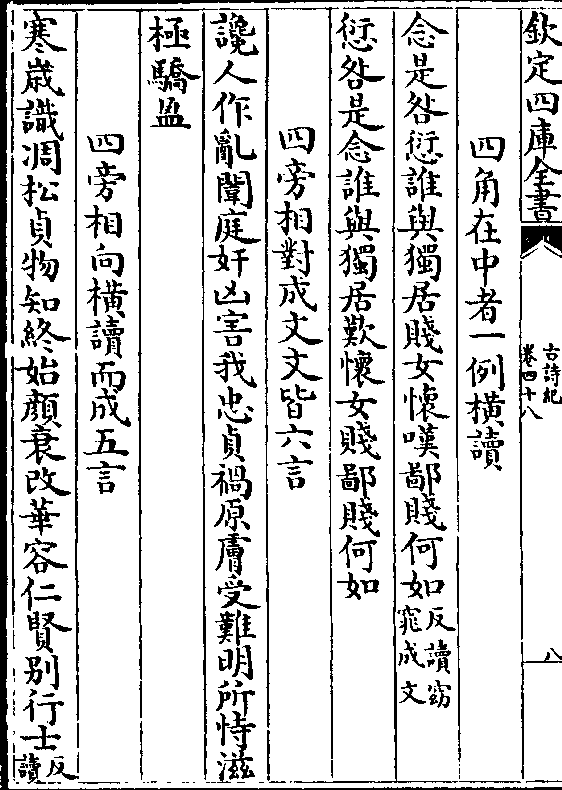 欽定四庫全書
古詩紀
卷四十八
八
四角在中者一例橫讀
念是咎愆誰與獨居賤女懷嘆鄙賤何如反讀窈窕成文
愆咎是念誰與獨居歎懷女賤鄙賤何如
四旁相對成文文皆六言
讒人作亂闈庭奸凶害我忠貞禍原膚受難明所恃滋
極驕盈
四旁相向橫讀而成五言
寒歲識凋松貞物知終始顏衰改華容仁賢别行士反讀